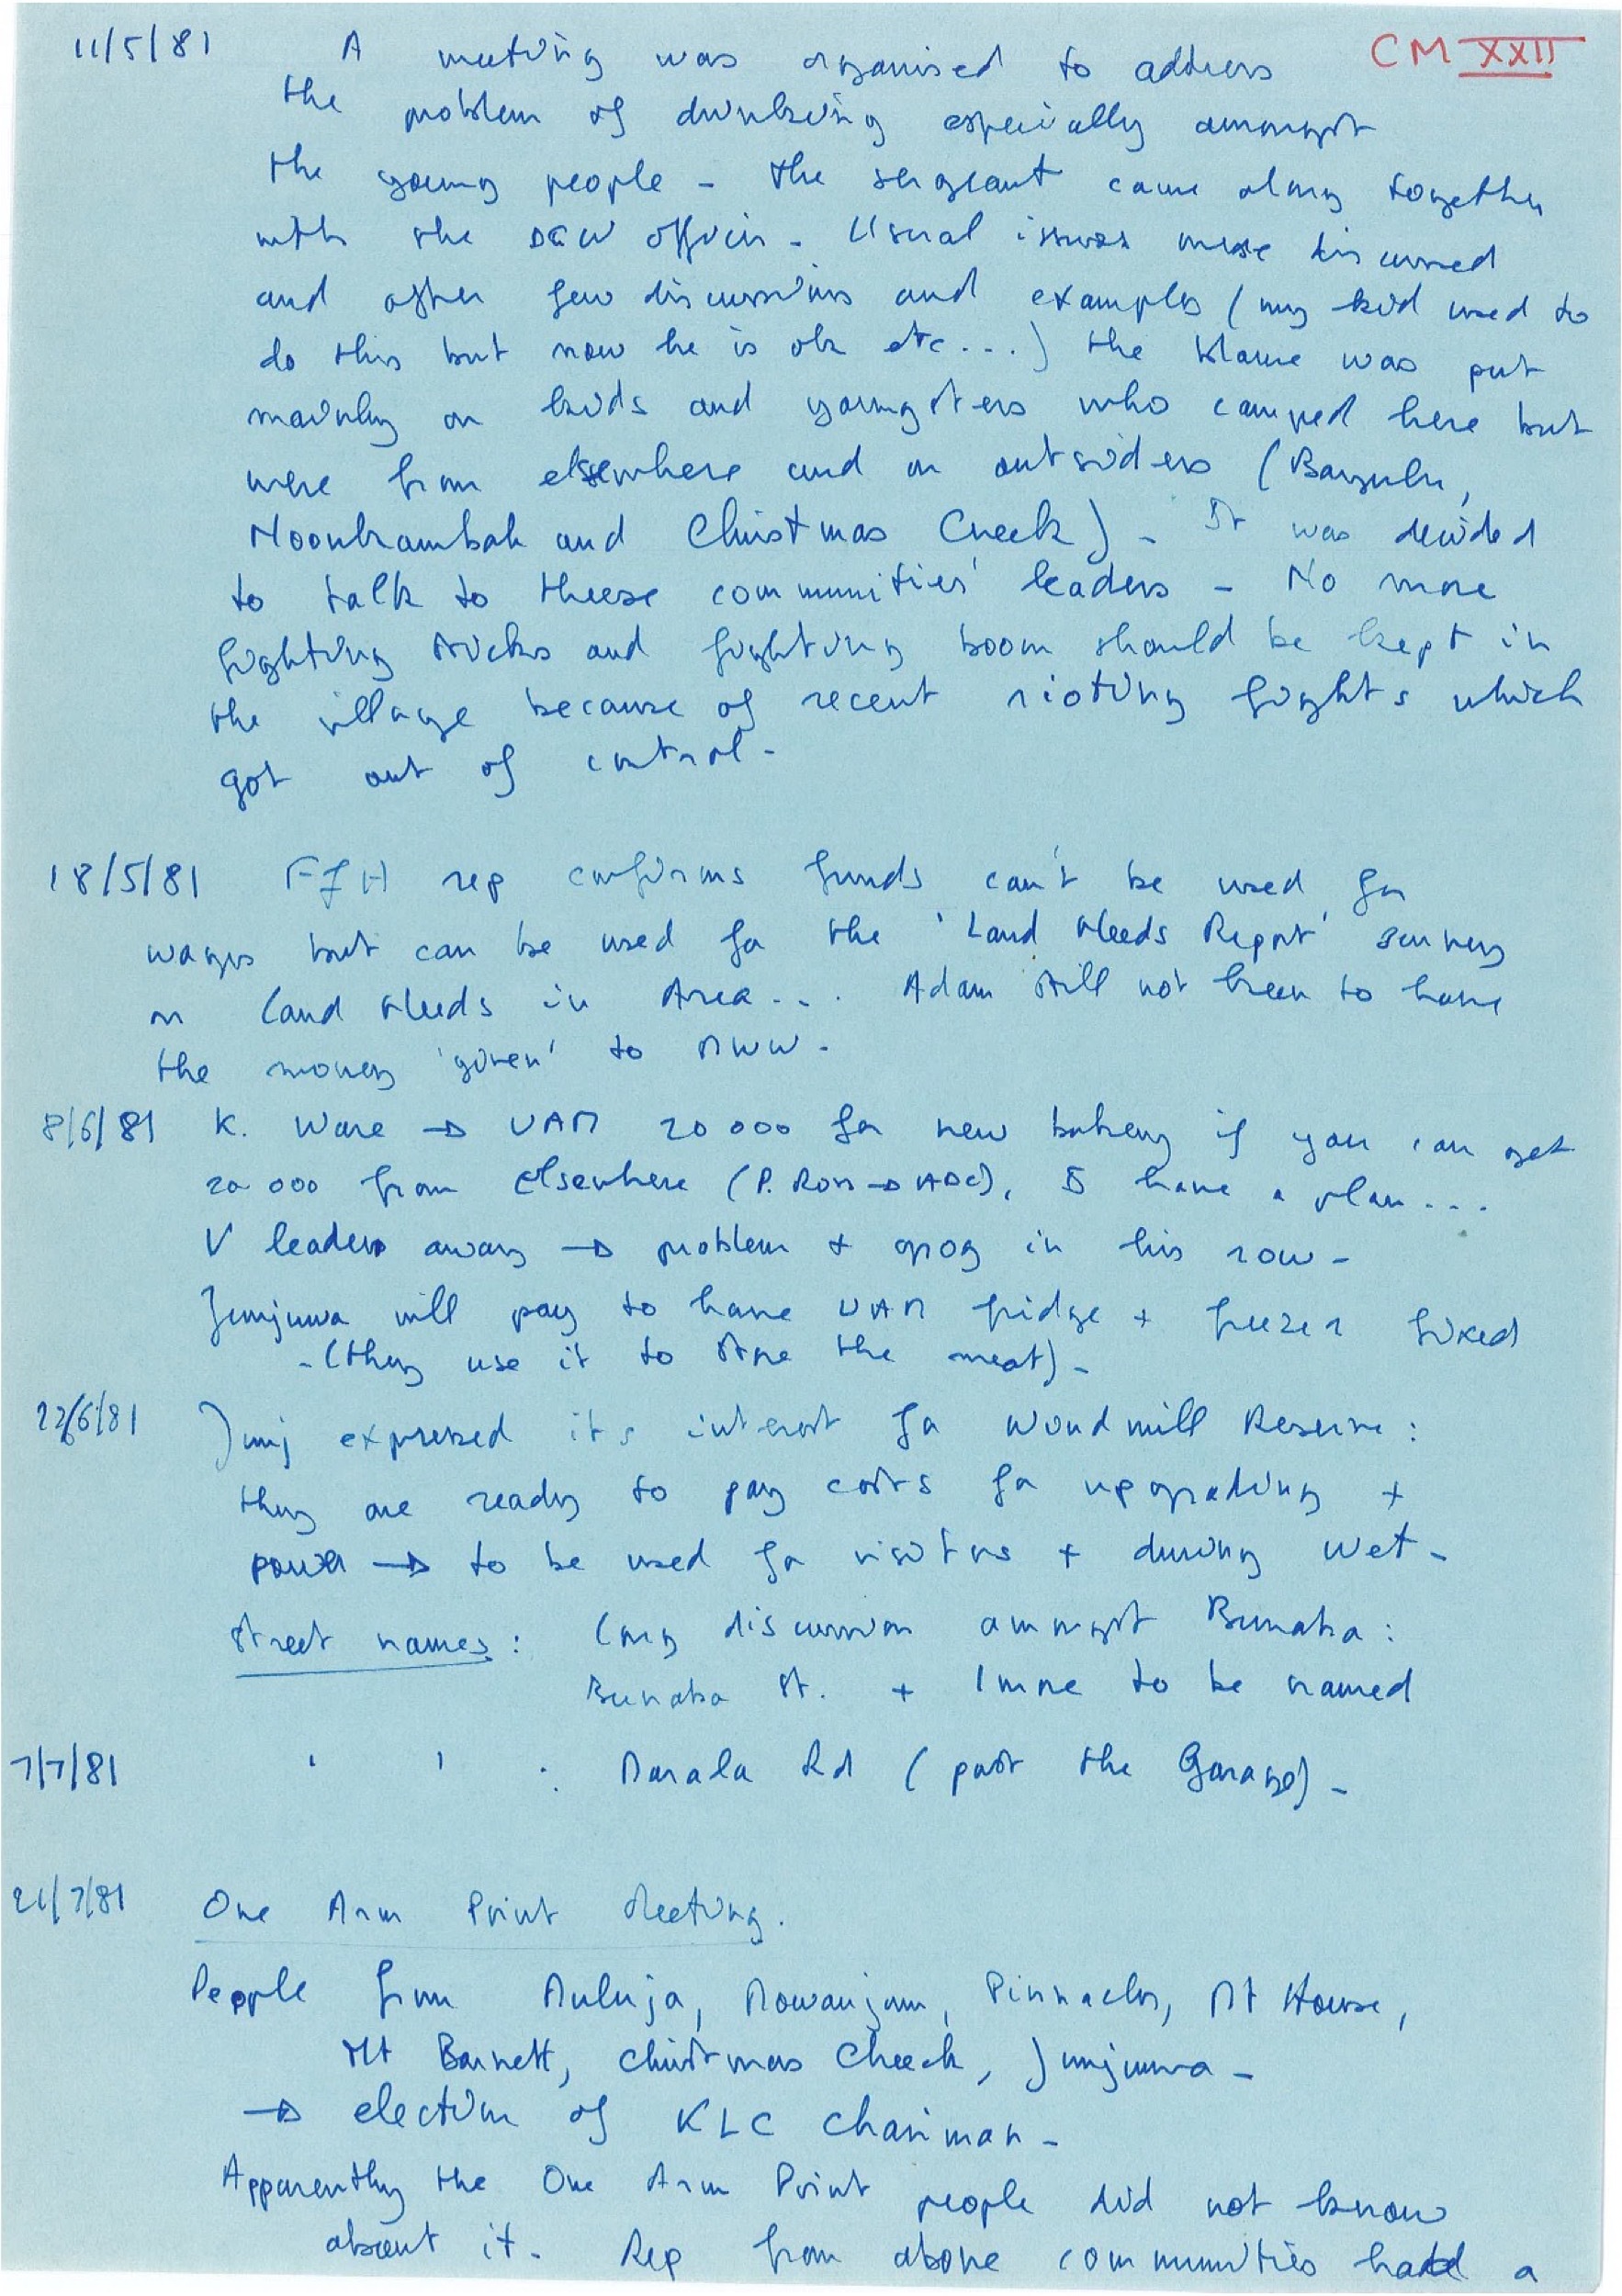 CM XXII
11/5/81 A meeting was organised to address
the problem of drinking especially amongst
the young people - the sergeant came along together
with the DCW officer - Usual issues were discussed
and after few discussions and examples (my kid used to
do this but now he is ok etc...) the blame was put
mainly on kids and youngsters who camped here but
were from elsewhere and on outsiders (Bayulu,
Noonkambah and Christmas Creek) - It was decided
to talk to theese communities' leaders - No more
fighting sticks and fighting boom should be kept in
the village because of recent rioting fights which
got out of control -
18/5/81 FFH rep confirms funds can't be used for
wages but can be used for the 'Land Needs Report' survey
on Land Needs in Area... Adam still not keen to have
the money 'given' to MWW -
8/6/81 K. Ware → UAM 20 000 for new bakery if you can get
20 000 from elsewhere (P. Ross → ADC), & have a plan ....
V leaders away → problem + grog in his row -
Junjuwa will pay to have UAM fridge + freezer fixed
- (they use it to store the meat) -
22/6/81 Junj expressed it's interest for Windmill Reserve :
they are ready to pay costs for upgrading +
power → to be used for visitors + during wet -
Street names : Long discussion amongst Bunaba :
Bunaba St. + 1 more to be named
7/7/81 ' ' : Marala Rd (past the Garage) -
21/7/81 One Arm Point Meeting.
People from Muluja, Mowanjum, Pinnacles, Mt House,
Mt Barnett, Christmas Cheek, Junjuwa -
→ election of KLC chairman -
Apparently the One Arm Point people did not know
about it. Rep from above communities had a